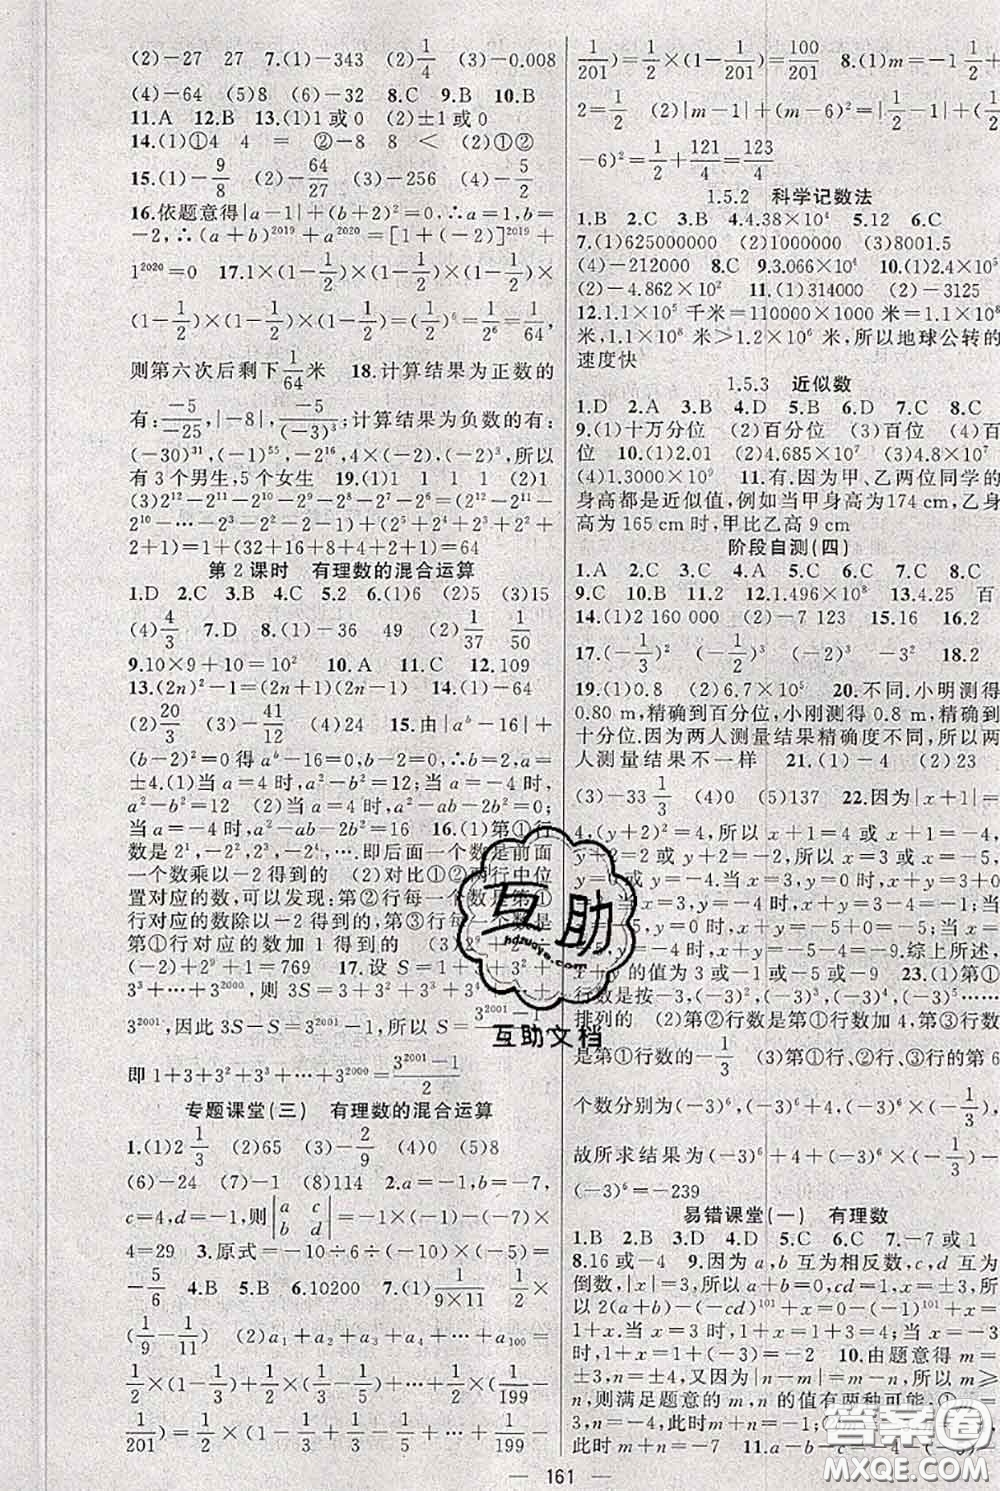 (2)-27 27 7.(1)-343 (2)1/4 (3)-0.008
(4)-64 (5)8 (6)-32 8.C 9.B 10.B
11.A 12.B 13.(1)1或0 (2)±1或0
14.(1)①4 4 = ②-8 8 < (2)①②
15.(1)-9/8 (2)-64/27 (3)-256 (4)-5/2
16.依题意得|a-1|+(b+2)²=0,∴a=1,b=
-2,∴(a+b)²⁰¹⁹+a²⁰²⁰=[1+(-2)]²⁰¹⁹+
1²⁰²⁰=0 17.1×(1-1/2)×(1-1/2)×
(1-1/2)×(1-1/2)×(1-1/2)=(1/2)⁶=1/2⁶=1/64,
则第六次后剩下1/64米 18.计算结果为正数的
有:-5/-25,|-8|,-5/(-3)³;计算结果为负数的有:
(-30)³¹,(-1)⁵⁵,-2¹⁶,4×(-2),(-2)³,所以
有3个男生,5个女生 19.(1)1 1 1 (2)1
(3)2¹²-2¹¹-2¹⁰-2⁹-2⁸-2⁷-2⁶=2¹¹-
2¹⁰-…-2⁶=2⁶=1+(2⁵+2⁴+2³+2²+
2+1)=1+(32+16+8+4+2+1)=64
第2课时 有理数的混合运算
1.D 2.C 3.B 4.C 5.2 6.(1)6 (2)5 (3)15
(4)4/3 7.D 8.(1)-36 49 (2)1/37 1/50
9.10×9+10=10² 10.A 11.C 12.109
13.(2n)²-1=(2n-1)(2n+1) 14.(1)-64
(2)20/3 (3)-41/12 (4)24 15.由|aᵇ-16|+
(b-2)²=0得aᵇ-16=0,b-2=0,∴b=2,a=
±4.(1)当a=4时,a²-b²=12;当a=-4时,
a²-b²=12 (2)当a=4时,a²-ab-2b²=0;
当a=-4时,a²-ab-2b²=16 16.(1)第①行
数是2¹,-2²,2³,-2⁴,….即后面一个数是前面
一个数乘以-2得到的 (2)对比①②两行中位
置对应的数,可以发现:第②行每一个数是第①
行对应的数除以-2得到的,第③行每一个数是
第①行对应的数加1得到的 (3)2⁹+
(-2)+2⁹+1=769 17.设S=1+3+3²+
3³+…+3²⁰⁰⁰,则3S=3+3²+3³+3⁴+…+
3²⁰⁰¹,因此3S-S=3²⁰⁰¹-1,所以S=(3²⁰⁰¹-1)/2,
即1+3+3²+3³+…+3²⁰⁰⁰=(3²⁰⁰¹-1)/2
专题课堂(三) 有理数的混合运算
1.(1)2 1/3 (2)65 (3)-2/9 (4)0 (5)8
(6)-24 (7)-1 (8)114 2.a=-1,b=-7,
c=4,d=-1,则|a c; b d|=-1×(-1)-(-7)×
4=29 3.原式=-10÷6÷(-10)×(-5)=
-5/6 4.B 5.B 6.10200 7.(1)1/(9×11) 1/2×
(1/9-1/11) (2)a₁+a₂+a₃+a₄+…+a₁₀₀=
1/2×(1-1/3)+1/2×(1/3-1/5)+…+1/2×(1/199-
1/201)=1/2×(1-1/3+1/3-1/5+…+1/199-
1/201)=1/2×(1-1/201)=100/201 8.(1)m=-1 1/2+
2=1/2 (2)|m-1|+(m-6)²=|1/2-1|+(1/2
-6)²=1/2+121/4=123/4
1.5.2 科学记数法
1.B 2.C 3.B 4.4.38×10⁴ 5.12 6.C
7.(1)625000000 (2)1000000 (3)8001.5
(4)-212000 8.C 9.3.066×10⁴ 10.(1)2.4×10⁵
(2)-4.862×10⁷ 11.(1)314000 (2)-3125
12.1.1×10⁵千米=110000×1000米=1.1×10⁸
米,1.1×10⁸米>1.2×10⁶米,所以地球公转的
速度快
1.5.3 近似数
1.D 2.A 3.B 4.D 5.B 6.C 7.C 8.C
9.(1)十万分位 (2)百分位 (3)百位 (4)百
位 10.(1)2.01 (2)4.685×10⁷ (3)9×10⁴
(4)1.3000×10⁹ 11.有,因为甲、乙两位同学的
身高都是近似值,例如当甲身高为174 cm,乙身
高为165 cm时,甲比乙高9 cm
阶段自测(四)
1.A 2.C 3.C 4.D 5.B 6.D 7.B 8.C
9.C 10.B 11.2 12.1.496×10⁸ 13.4.25 百
14.(1)2 160 000 (2)-7 123 15.16 16.2
17.(-1/3)² (-1/2)³ (-2)³ -3² 18.2
19.(1)0.8 (2)6.7×10⁵ 20.不同,小明测得
0.80 m,精确到百分位,小刚测得0.8 m,精确到
十分位.因为两人测量结果精确度不同,所以两
人测量结果不一样 21.(1)-4 (2)23
(3)-33 1/3 (4)0 (5)137 22.因为|x+1|=
4,(y+2)²=4,所以x+1=4或x+1=-4,
y+2=2或y+2=-2,所以x=3或x=-5,
y=0或y=-4.当x=3,y=0时,x+y=3+0
x=-5,y=0时,x+y=-5+0=-5;
y=-4时,x+y=-5-4=-9.综上所述,
x+y的值为3或-1或-5或-9 23.(1)第①
行数是按-3,(-3)²,(-3)³,(-3)⁴,(-3)⁵……
排列的 (2)第②行数是第①行数加4,第③行数
是第①行数的-1/3 (3)第①行、②行、③行的第6
个数分别为(-3)⁶,(-3)⁶+4,(-3)⁶×(-1/3),
故所求结果为(-3)⁶+4+(-3)⁶×(-1/3)-
(-3)⁶=-239
易错课堂(一) 有理数
1.B 2.B 3.D 4.D 5.C 6.C 7.-7或1
8.16或-4 9.因为a,b互为相反数,c,d互为
倒数,|x|=3,所以a+b=0,cd=1,x=±3,所
以2(a+b)-(-cd)¹⁰¹+x=0-(-1)¹⁰¹+x=
1+x.当x=3时,1+x=1+3=4;当x=-3
时,1+x=1-3=-2 10.由题意得m=
±3,n=±4,又因为|n-m|=n-m,所以n≥
m,则满足题意的m,n的值有两种可能,①m=
3,n=4,此时m+n=7
此时m+n=-7 11.a-b-c=-4-(-5)
161
互助
hdzuoye.com
互助文档
答案圈
MXQE.COM